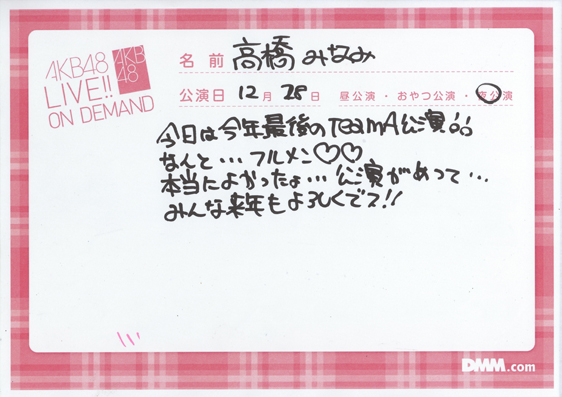 AKB48
LIVE!!
ON DEMAND
AKB
48
名前 高橋みなみ
公演日 12月 28日 昼公演・おやつ公演・夜公演
今日は今年最後のTeamA公演!!
なんと…フルメン♡♡
本当によかったょ…公演があって…
みんな来年もよろしくでス!!
DMM.com